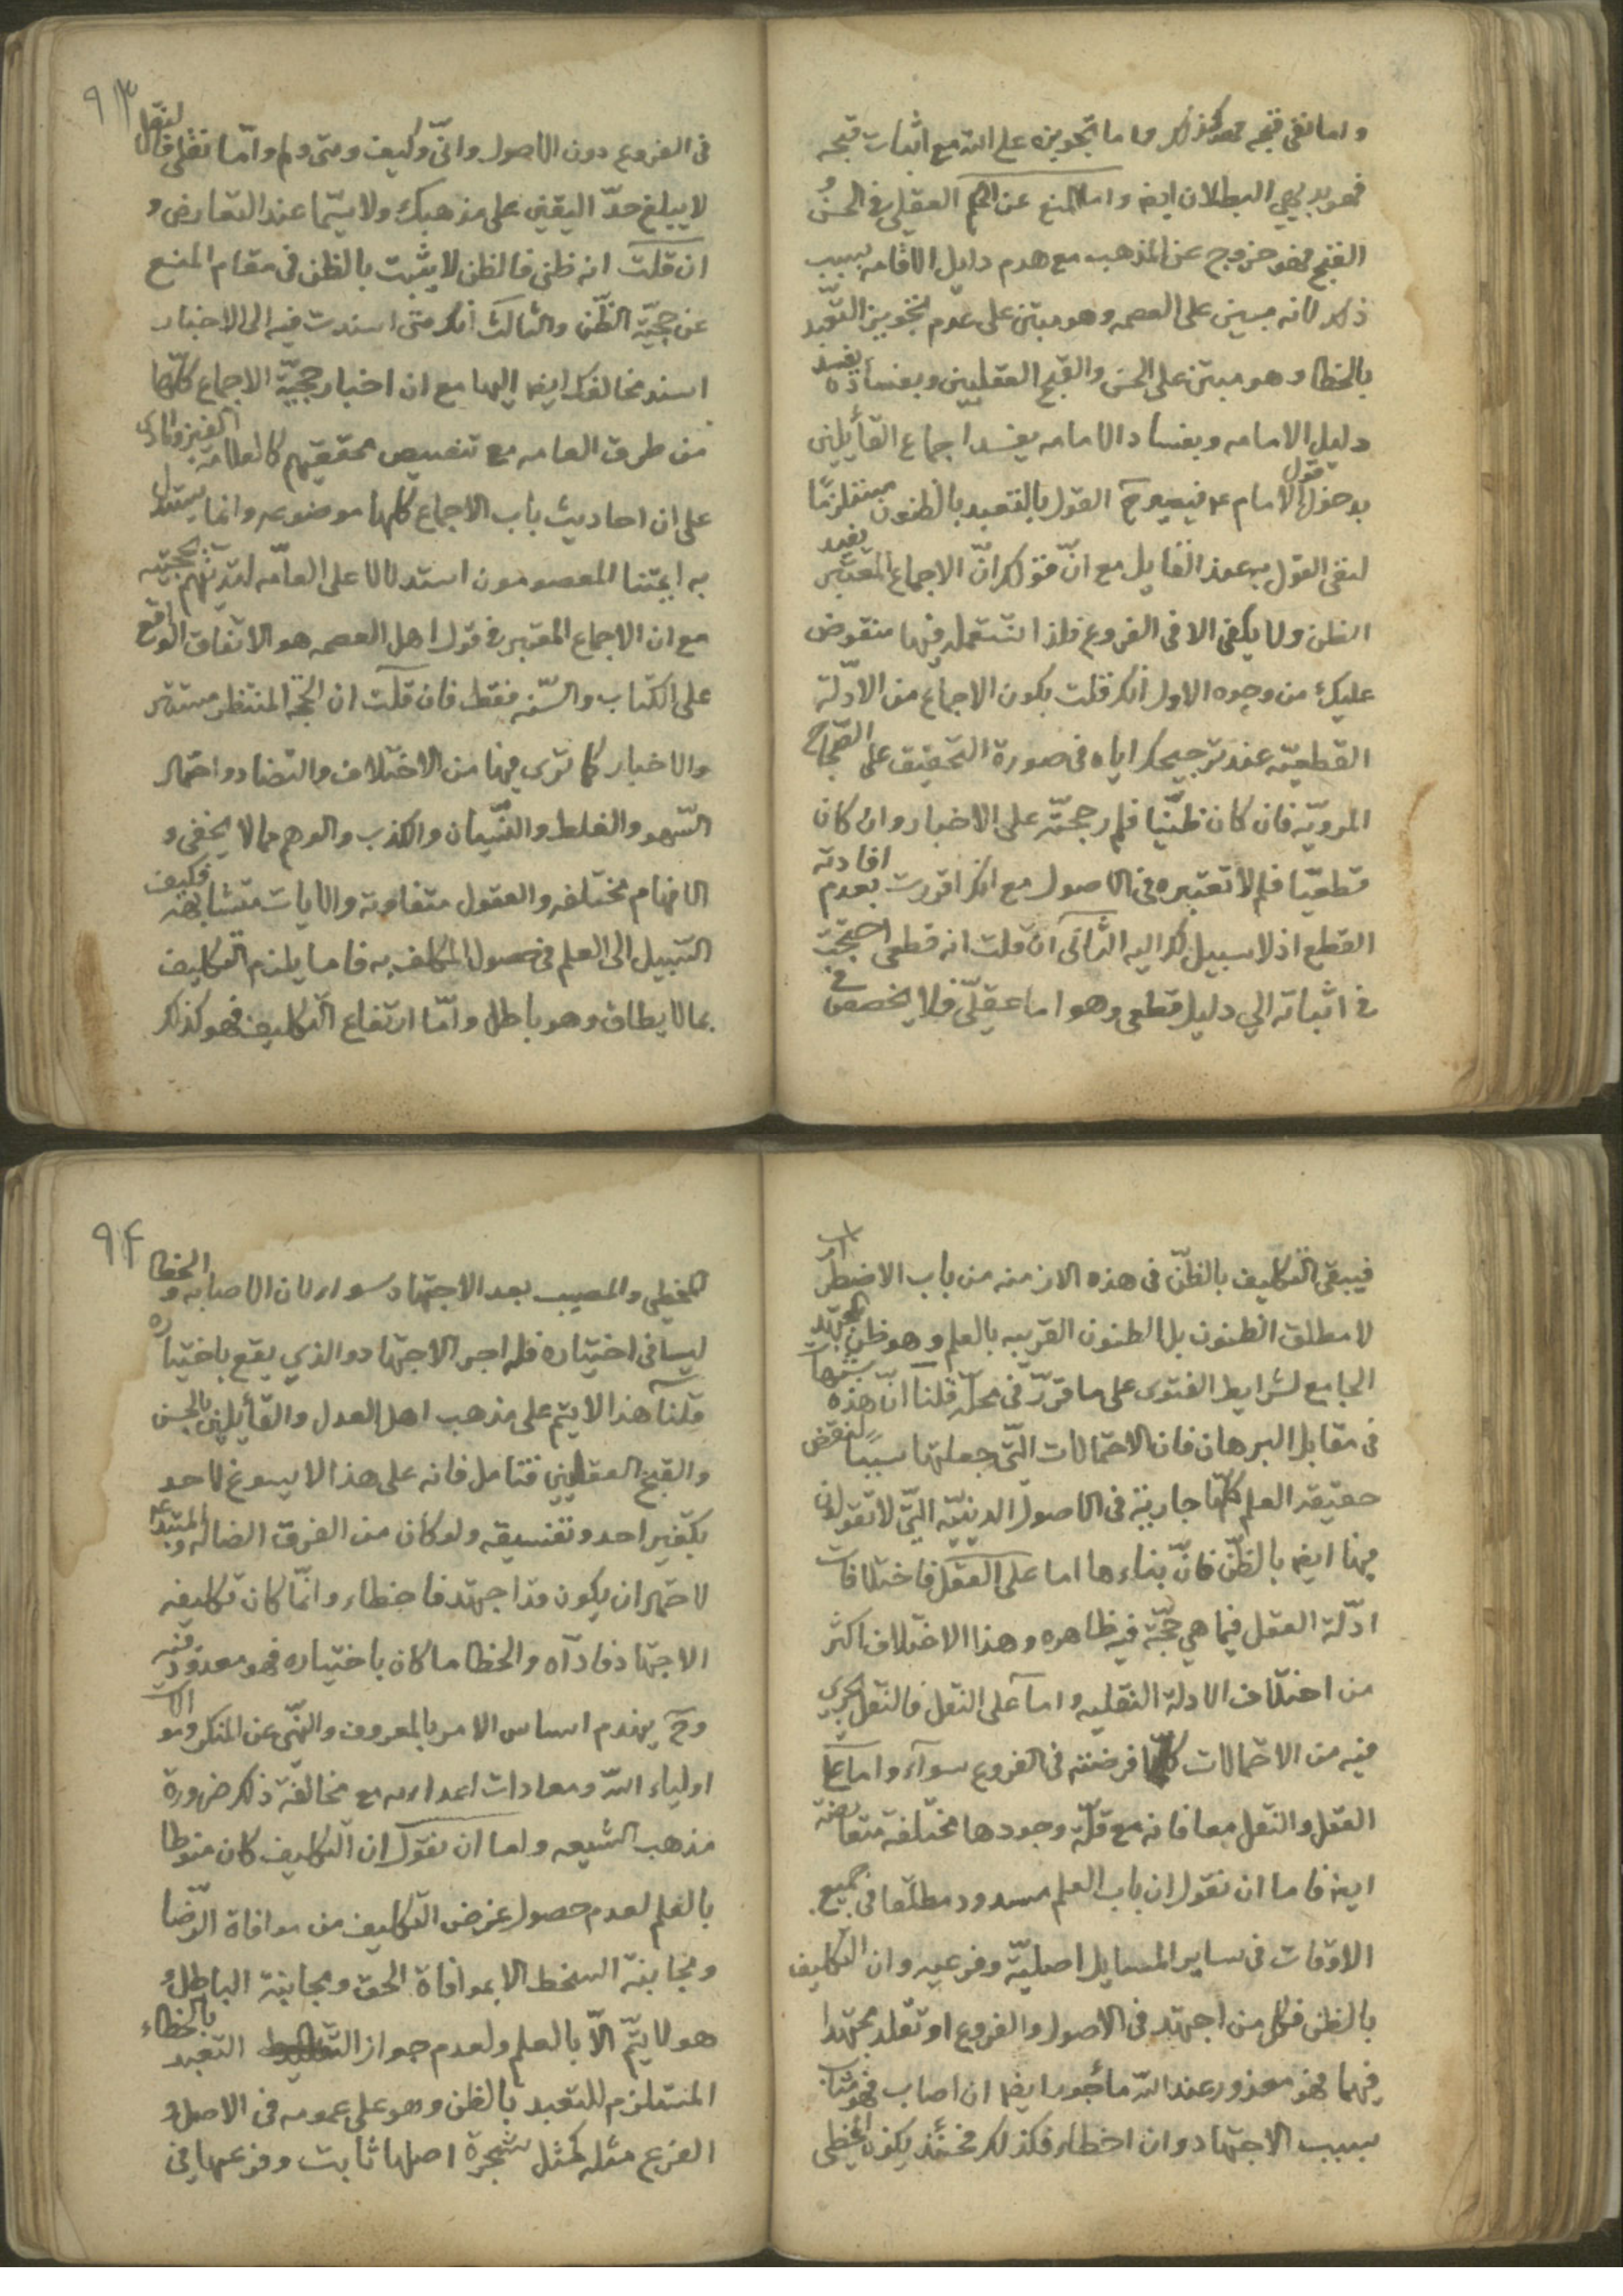 واما نفى قبحه فهو كذلك واما تجويزه على الله مع اثبات قبحه
فهو بديهي البطلان ايضا واما المنع عن الحكم العقلي في الحسن
القبح فهو خروج عن المذهب مع هدم دليل الاقامه بسبب
ذلك لانه مبين على العصمه وهو مبتن على عدم تجويز التعبد
بالخطا وهو مبتن على الحسن والقبح العقليين وبفساده يفسد
دليل الامامه وبفساد الامامه يفسد اجماع القائلين
بدخول قول الامام ع فيصيرح القول بالتعبد بالظنون مستلزما
لنفى القول به عند القايل مع انّ قولك انّ الاجماع المعتبر يفيد
الظن ولا يكفى الا فى الفروع فلذا نستعمله فيها منقوض
عليك من وجوه الاول انك قلت بكون الاجماع من الادلّة
القطعيّة عند ترجيحك اياه فى صورة التحقيق على الصحاح
المرويّه فان كان ظنّيا فلم رجحته على الاخبار وان كان
قطعيّا فلم لا تعتبره فى الاصول مع انك اقررت بعدم افادته
القطع اذ لا سبيل لك اليه الثانى ان قلت انه قطعى احتجت
فى اثباته الي دليل قطعى وهو اما عقلىّ فلا يخصص فى
٩٣
فى الفروع دون الاصول وانّى وكيف ومتى ولم وامّا نقلى فالنقل
لا يبلغ حدّ اليقين على مذهبك ولا سيّما عند التعارض و
ان قلت انه ظنى فالظن لا يثبت بالظن فى مقام المنع
عن حجيّة الظّن والثالث انك متى اسندت فيه الى الاخبار
اسند مخالفك ايضا اليها مع ان اخبار حجيّة الاجماع كلّها
من طرق العامه مع تنصيص محققيهم كالعلامة الفيروزابادى
على ان احاديث باب الاجماع كلها موضوعه وانما يستدل
به ائمتنا المعصومون استدلالا على العامّه لتدينهم بحجيته
مع ان الاجماع المعتبر فى قول اهل العصمه هو الاتفاق الواقع
على الكتاب والسّنه فقط فان قلت ان الحجة المنتظر مستتر
والاخبار كما ترى فيها من الاختلاف والتضاد واحتمال
السّهو والغلط والنّسيان والكذب والوهم مما لا يخفى و
الافهام مختلفه والعقول متفاوتة والايات متشابهه فكيف
السّبيل الى العلم فى حصول المكلف به فاما يلزم التكليف
بما لا يطاق وهو باطل وامّا ارتفاع التكليف فهو كذلك
فيبقى التكليف بالظنّ فى هذه الازمنه من باب الاضطرار
لا مطلق الظنون بل الظنون القريبه بالعلم وهو ظن المجتهد
الجامع لشرايط الفتوى على ما قررّ فى محلّه قلنا انّ هذه شبهات
فى مقابل البرهان فان الاحتمالات الّتى جعلتها سببا لنقض
حقيقة العلم كلّها جارية فى الاصول الدينيّه الّتى لا تقولون
فيها ايضا بالظّن فانّ بناءها اما على العقل فاختلافات
ادّلة العقل فيما هي حجّة فيه ظاهره وهذا الاختلاف اكثر
من اختلاف الادلة النقليه واما على النقل فالنقل يجرى
فيه من الاحتمالات كلّما فرضته فى الفروع سوآء واما على
العقل والنقل معا فانه مع قلّة وجودها مختلفة متعارضة
ايضا فاما ان نقول ان باب العلم مسدود مطلقا فى جميع
الاوقات فى ساير المسايل اصليّة وفرعيه وان التكليف
بالظن فكل من اجتهد فى الاصول والفروع او تقلد مجتهدا
فيهما فهو معذور عند الله مأجور ايضا ان اصاب فهو مثاب
بسبب الاجتهاد وان اخطاء فكذلك فحنئذ يكون المخطى
٩٤
المخطي والمصيب بعد الاجتهاد سواء لان الاصابه والخطا
ليسا فى اختياره فله اجر الاجتهاد والذي يقع باختياره
قلنا هذا لا يتم على مذهب اهل العدل والقائلين بالحسن
والقبح العقليين فتامل فانه على هذا لا يسوغ لاحد
تكفير احد وتفسيقه ولو كان من الفرق الضاله والمبتدعه
لاحتمال ان يكون قد اجتهد فاخطاء وانّما كان تكليفه
الاجتهاد فادّاه والخطا ما كان باختياره فهو معذور فيه
وح ينهدم اساس الامر بالمعروف والنهّى عن المنكر وموالات
اولياء اللّه ومعادات اعدائه مع مخالفة ذلك ضرورة
مذهب الشيعه واما ان نقول ان التكليف كان منوطا
بالعلم لعدم حصول غرض التكليف من موافاة الرّضا
ومجانبة السخط الا بموافاة الحق ومجانبة الباطل و
هو لا يتّم الاّ بالعلم ولعدم جواز التعبد بالخطاء
المستلزم للتعبد بالظن وهو على عمومه فى الاصل و
الفرع مثله كمثل شجرة اصلها ثابت وفرعها في